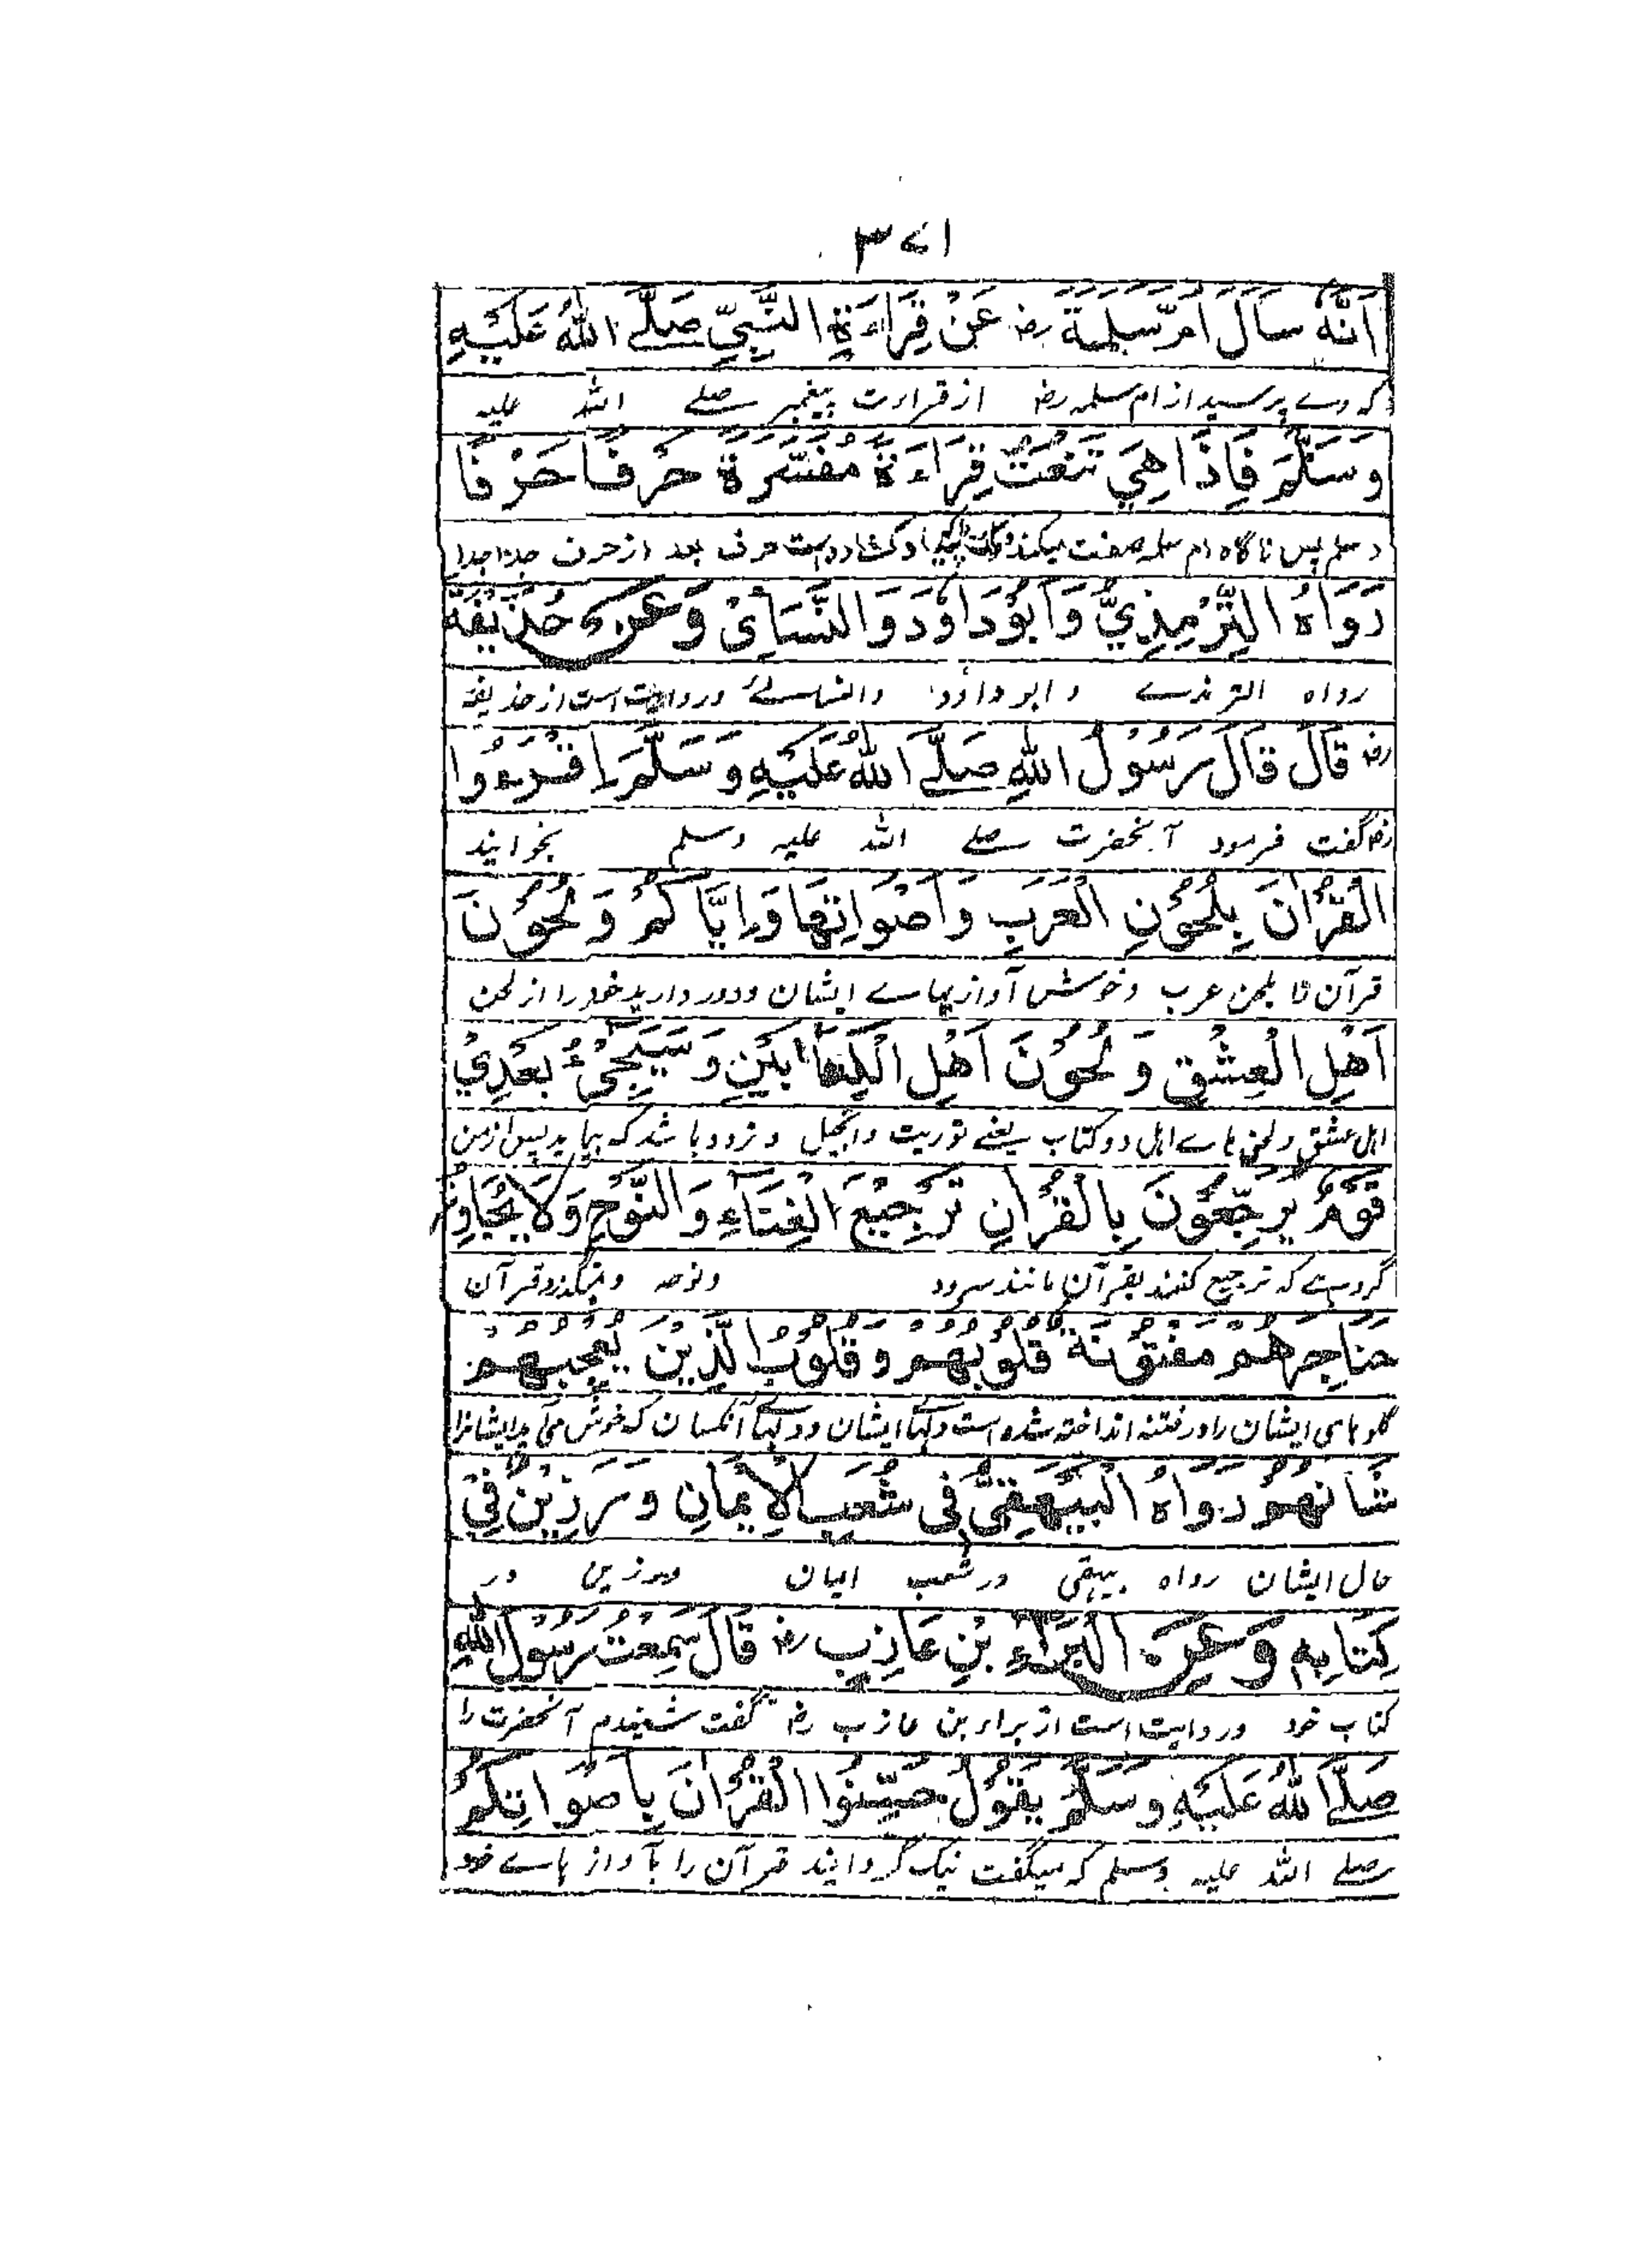 ۳۷۱
اَنَّهٗ سَاَلَ اُمَّ سَلِمَةَ رضہ عَنْ قِرَاءَةِ النَّبِيِّ صَلَّے اللّٰهُ عَلَيْهِ
کہ وے پرسید از ام سلمہ رضہ از قراءت پیغمبر صلے اللہ علیہ
وَسَلَّمَ فَاِذَا هِيَ تَنْعَتُ قِرَاءَةً مُفَسَّرَةً حَرْفًا حَرْفًا
وسلم پس ناگاه ام سلمہ صفت میکند کشاده است حرف بعد از حرف جدا جدا
رَوَاهُ التِّرْمِذِيُّ وَاَبُوْدَاوٗدَ وَالنَّسَائِیْ وَعَنْ حُذَيْفَةَ
رواه الترمذے و ابو داؤد والنسائے و روایت است از حذیفہ
رضہ قَالَ قَالَ رَسُوْلُ اللّٰهِ صَلَّے اللّٰهُ عَلَيْهِ وَسَلَّمَ اِقْرَءُوا
رضہ گفت فرمود آنحضرت صلے اللہ علیہ وسلم بخوانید
الْقُرْاٰنَ بِلُحُوْنِ الْعَرَبِ وَاَصْوَاتِهَا وَاِيَّاكُمْ وَلُحُوْنَ
قرآن را بلحن عرب و خوش آوازیہاے ایشان و دور دارید خود را از لحن
اَهْلِ الْعِشْقِ وَلُحُوْنَ اَهْلِ الْكِتَابَيْنِ وَسَيَجِیْءُ بَعْدِيْ
اہل عشق و لحن ہاے اہل دو کتاب یعنے توریت و انجیل و زود باشد کہ بیاید پس از من
قَوْمٌ يُرَجِّعُوْنَ بِالْقُرْاٰنِ تَرْجِيْعَ الْغِنَآءِ وَالنَّوْحِ وَلَا يُجَاوِزُ
گروہے کہ ترجیع کنند بقرآن مانند سرود و نوحہ و نیگذرد قرآن
حَنَاجِرَهُمْ مَفْتُوْنَةً قُلُوْبُهُمْ وَقُلُوْبُ الَّذِيْنَ يُعْجِبُهُمْ
گلوہای ایشان را در فتنہ انداختہ شدہ است دلہا ایشان و دلہا آنکسان کہ خوش می آید ایشانرا
شَانُهُمْ رَوَاهُ الْبَيْهَقِيُّ فِی شُعَبِ الْاِيْمَانِ وَرَزِيْنٌ فِيْ
حال ایشان رواه بیہقی در شعب ایمان و رزین در
كِتَابِهٖ وَعَنِ الْبَرَآءِ بْنِ عَازِبٍ رضہ قَالَ سَمِعْتُ رَسُوْلَ اللّٰهِ
کتاب خود و روایت است از براء بن عازب رضہ گفت شنیدم آنحضرت را
صَلَّے اللّٰهُ عَلَيْهِ وَسَلَّمَ يَقُوْلُ حَسِّنُوا الْقُرْاٰنَ بِاَصْوَاتِكُمْ
صلے اللہ علیہ وسلم کہ میگفت نیک گردانید قرآن را بآواز ہاے خود